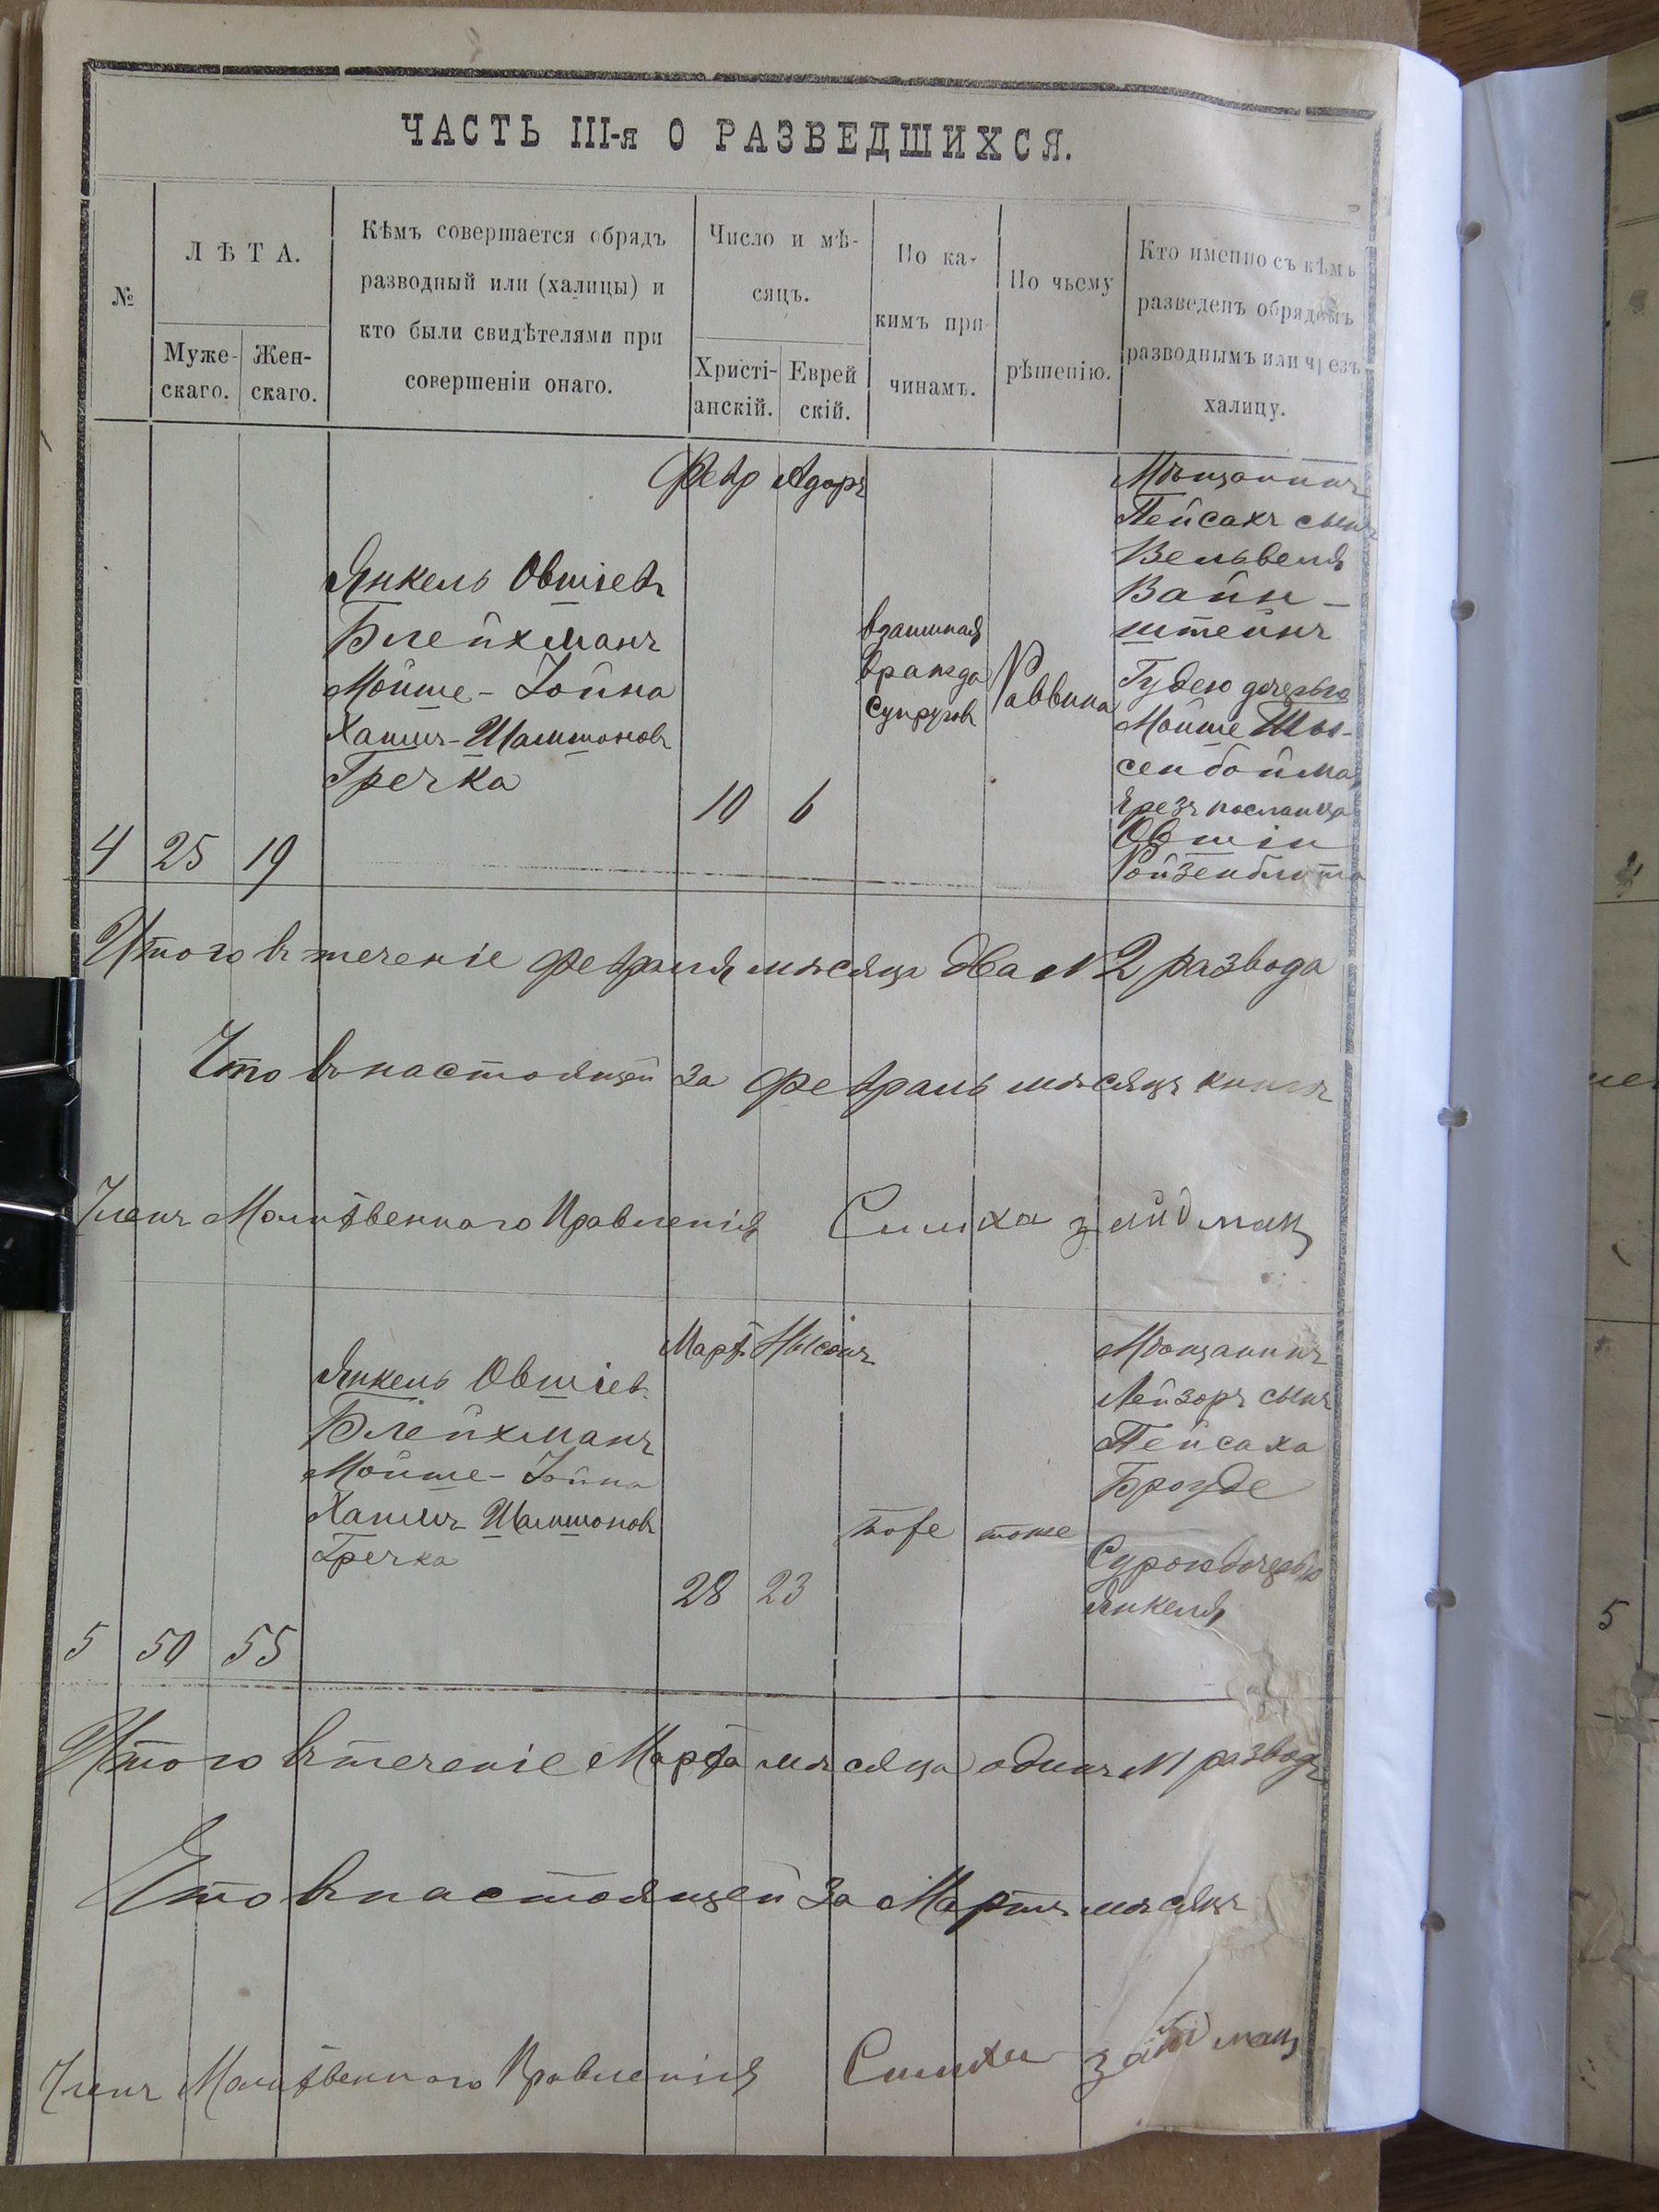 ЧАСТЬ III-я О РАЗВЕДШИХСЯ.
№
ЛѢТА.
Муже-
скаго.
Жен-
скаго.
Кѣмъ совершается обрядъ
разводный или (халицы) и
кто были свидѣтелями при
совершеніи онаго.
Число и мѣ-
сяцъ.
Христі-
анскій.
Еврей
скій.
По ка-
кимъ при-
чинамъ.
По чьему
рѣшенію.
Кто именно съ кѣмъ
разведенъ обрядомъ
разводнымъ или чрезъ
халицу.
4
25
19
Янкель Овшіевъ
Блейхманъ
Мойше-Іойна
Хаимъ-Шамшоновъ
Гречка
Февр
10
Адоръ
6
взаимная
вражда
супруговъ
Раввина
Мѣщанинъ
Пейсахъ сынъ
Вельвеля
Вайн-
штейнъ
Гудею дочерью
Мойше
сенбойма
чрезъ посланца
Овшія
Ройзенблита
Итого въ теченіе февраля мѣсяца два №2 развода
Что въ настоящей за февраль мѣсяцъ книгѣ
Членъ Молитвеннаго Правленія Симха зайдман
5
50
55
Янкель Овшіев.
Блейхманъ
Мойше-Іойна
Хаимъ Шамшоновъ
Гречка
Март.
28
Нысонъ
23
тоже
тоже
Мѣщанинъ
Лейзоръ сынъ
Пейсаха
Броуде
Сурою дочерью
Янкеля
Итого въ теченіе Марта мѣсяца одинъ №1 разводъ
Что въ настоящей за Мартъ мѣсяцъ
Членъ Молитвеннаго Правленія Симха зайдман
5